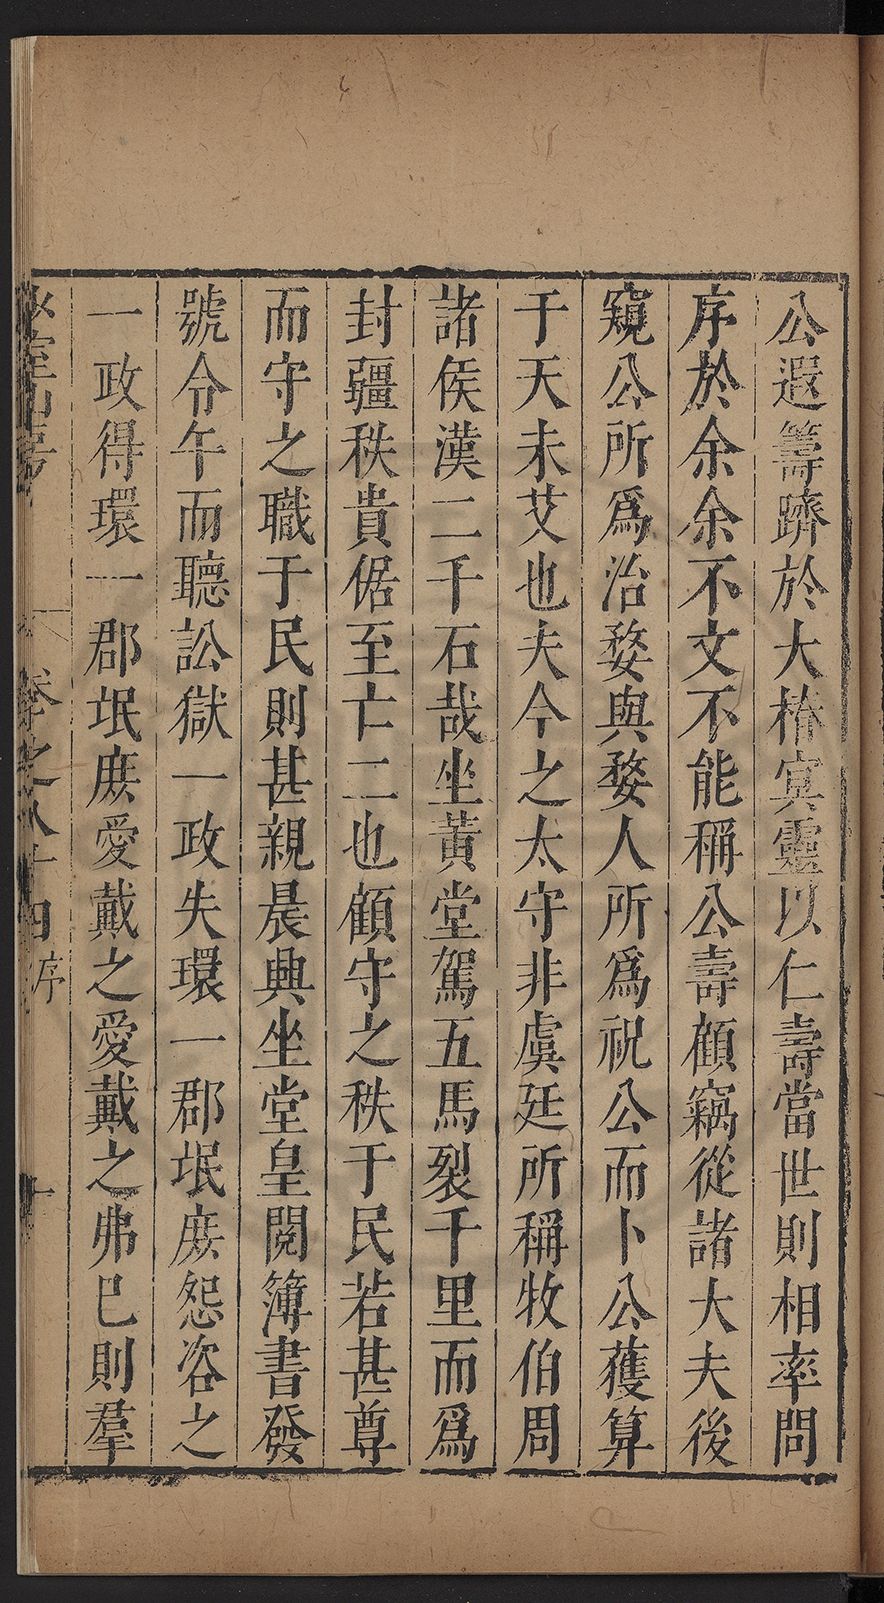 公遐籌躋於大椿㝠靈以仁壽當世則相率問
序於余余不文不能稱公壽顧竊從諸大夫後
窺公所爲治婺與婺人所爲祝公而卜公獲算
于天未艾也夫今之太守非虞廷所稱牧伯周
諸侯漢二千石哉坐黃堂駕五馬裂千里而爲
封疆秩貴倨至亡二也顧守之秩于民若甚尊
而守之職于民則甚親晨興坐堂皇閱簿書發
號令午而聽訟獄一政失環一郡氓庶怨咨之
一政得環一郡氓庶愛戴之愛戴之弗巳則羣
卷之八十四 序 十